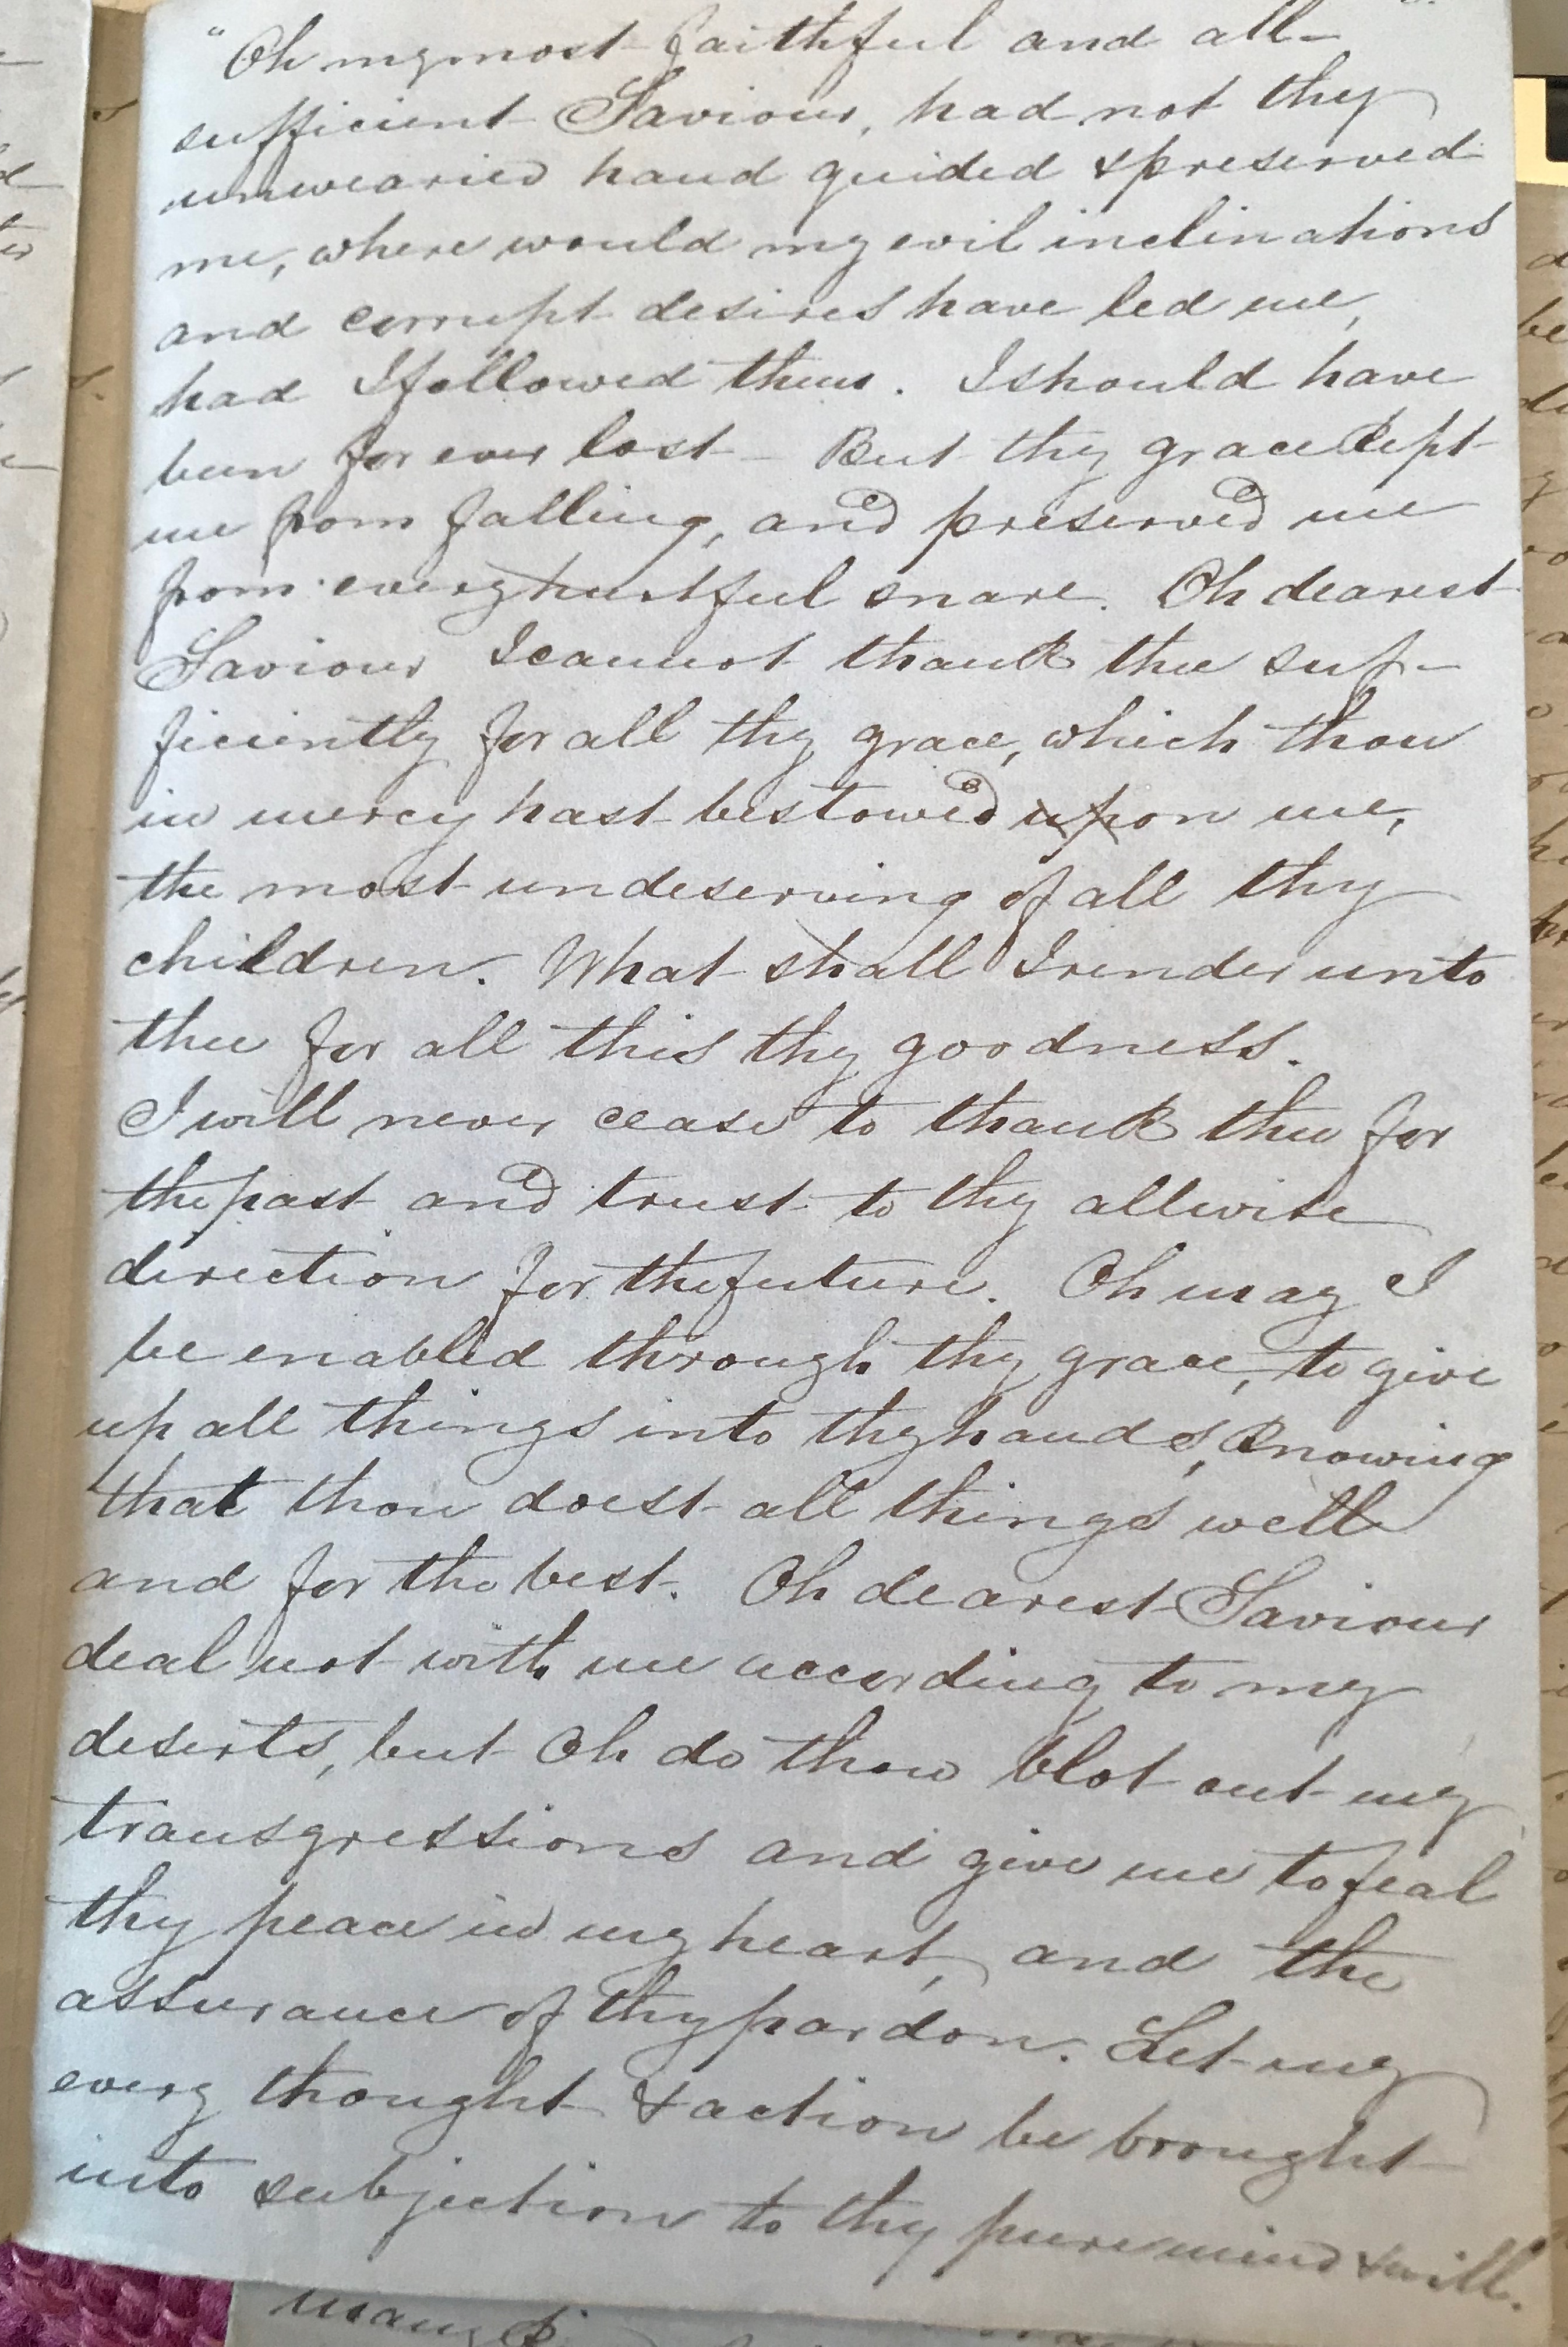 "Oh my most faithful and all-
sufficient Saviour, had not thy
unwearied hand guided & preserved
me, where would my evil inclinations
and corrupt desires have led me,
had I followed them. I should have
been for ever lost - But thy grace kept
me from falling, and preserved me
from every hurtful snare. Oh dearest
Saviour I cannot thank thee suf-
ficiently for all thy grace, which thou
in mercy hast bestowed upon me,
the most undeserving of all thy
children. What shall I render unto
thee for all this thy goodness.
I will never cease to thank thee for
the past and trust to thy allwise
direction for the future. Oh may I
be enabled through thy grace, to give
up all things into thy hands, knowing
that thou doest all things well
and for the best. Oh dearest Saviour
deal not with me according to my
deserts, but Oh do thou blot out my
transgressions and give me to feal
thy peace in my heart, and the
assurance of thy pardon. Let my
every thought & action be brought
into subjection to thy pure mind & will.
many